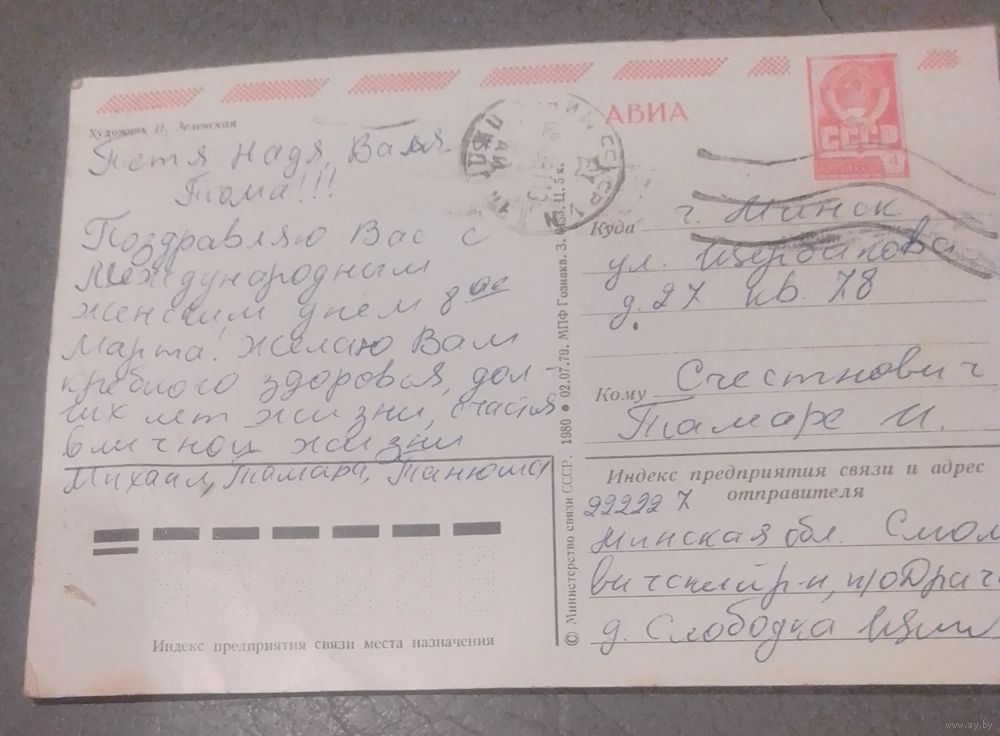 Художник Н. Зеленская
Тетя Надя, Валя
Тома!!!
Поздравляю Вас с
Международным
женским днем 8ое
Марта! Желаю Вам
крепкого здоровья, дол-
гих лет жизни, счастья
в личной жизни
Михаил, Тамара, Танюша
Индекс предприятия связи места назначения
© Министерство связи СССР. 1980 ● 02.07.79. МПФ Гознака. З. Ц. 5 к.
АВИА
СССР
4
Куда г. Минск
ул. Щербакова
д. 27 кв. 78
Кому Счестнович
Тамаре И.
Индекс предприятия связи и адрес
отправителя
222227
Минская обл. Смол
вичский р-н, п/о Драч
д. Слободка
www.ay.by